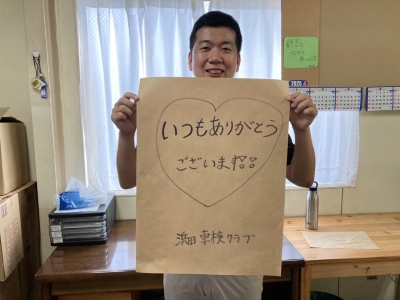 いつもありがとう
ございます!!
浜田車検クラブ
2025